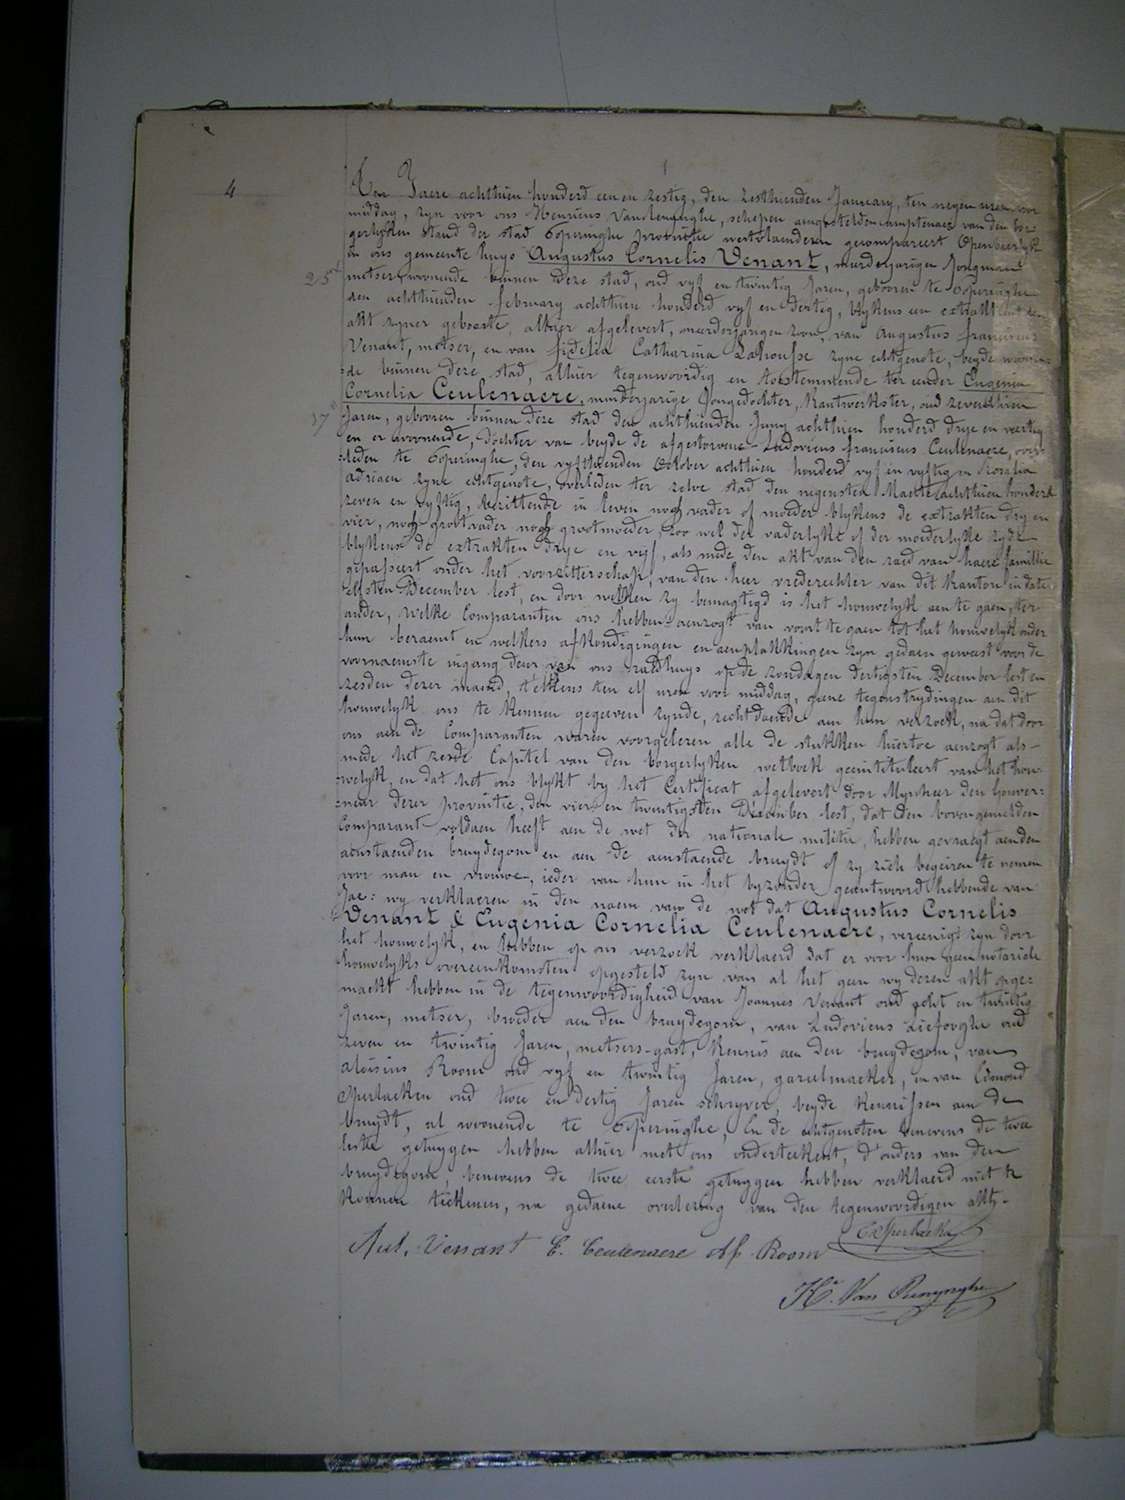 4
Den Jaere achthien honderd een en zestig, den zesthienden January, ten negen uren voor
middag, zyn voor ons Henricus Vanrenynghe, schepen aengestelden amptenaer van den bor-
gerlyken stand der stad Poperinghe provintie westvlaenderen gecompareert openbaerlyk
in ons gemeente huys Augustus Cornelis Venant, meerderjarigen Jongman
25
metser, woonende binnen deze stad, oud vyf en twintig Jaren, gebooren te Poperinghe
den achthienden february achthien honderd vyf en dertig, blykens een extrakt uit den
akt zyner geboorte, alhier afgelevert, meerderjarigen zoon, van Augustus franciscus
Venant, metser, en van fidelia Catharina Lahousse zyne echtgenote, beyde woonen-
de binnen deze stad, alhier tegenwoordig en toestemmende ter eender Eugenia
Cornelia Ceulenaere, minderjarige Jongedochter, Kantwerkster, oud zeventhien
17
Jaren, gebooren binnen deze stad den achthienden Juny achthien honderd drye en veertig
en er woonende, dochter van beyde de afgestorvene Ludovicus franciscus Ceulenaere, over-
leden te Poperinghe, den vyfthienden October achthien honderd vyf en vyftig en Rosalia
adriaen zyne echtgenote, overleden ter zelve stad den negensten Maerte achthien honderd
zeven en vyftig, bezittende in leven nog vader of moeder blykens de extrakten dry en
vier, nog grootvader nog grootmoeder zoo wel der vaderlyke of der moederlyke zyde
blykens de extrakten drye en vyf, als mede den akt van den raed van haere famillie
gepasseert onder het voorzitterschap, van den heer vrederechter van dit kanton in date
elfsten December lest, en door welken zy bemagtigd is het houwelyk aen te gaen, ter
ander, Welke Comparanten ons hebben aenzogt van voort te gaen tot het houwelyk onder
hun beraemt en welkers afkondigingen en aenplakkingen zyn gedaen geweest voor de
voornaemste ingang deur van ons raedhuys op de zondagen dertigsten December lest en
zesden dezer maend, t'elkens ten elf uren voor middag, geene tegenstrydingen aen dit
houwelyk ons te kennen gegeeven zynde, recht doende aen hun verzoek, na dat door
ons aen de Comparanten waren voorgelezen alle de stukken hiertoe aenzogt als-
mede het zesde Capitel van den borgerlyken wetboek geëntituleert van het hou-
welyk, en dat het ons blykt by het Certificat afgelevert door Mynheer den Gouver-
neur dezer provintie, den vier en twintigsten December lest, dat den bovengemelden
Comparant voldaen heeft aen de wet der nationale militie, hebben gevraegt aen den
aenstaenden bruydegom en aen de aenstaende bruydt of zy zich begeiren te nemen
voor man en vrouwe, ieder van hun in het byzonder geantwoord hebbende van
Jae: wy verklaeren in den naem van de wet dat Augustus Cornelis
Venant & Eugenia Cornelia Ceulenaere, vereenigt zyn door
het houwelyk, en hebben op ons verzoek verklaerd dat er voor hun geen notariele
houwelyks overeenkomsten opgesteld zyn van al het geen wy dezen akt opge-
maekt hebben in de tegenwoordigheid van Joannes Venant oud acht en twintig
Jaren, metser, broeder aen den bruydegom, van Ludovicus Liefooghe oud
zeven en twintig Jaren, metsers-gast, Kennis aen den bruydegom, van
aloïsius Room oud vyf en twintig Jaren, gareelmaeker, en van Edmond
Sperlaeken oud twee en dertig Jaren schryver, beyde Kennissen aen de
bruydt, al woonende te Poperinghe, En de echtgenoten benevens de twee
leste getuygen hebben alhier met ons onderteekent, d'ouders van den
bruydegom, benevens de twee eerste getuygen hebben verklaerd niet te
konnen teekenen, na gedaene overlezing van den tegenwoordigen akt.
Aut. Venant E. Ceulenaere Room
Hi. Van Renynghe